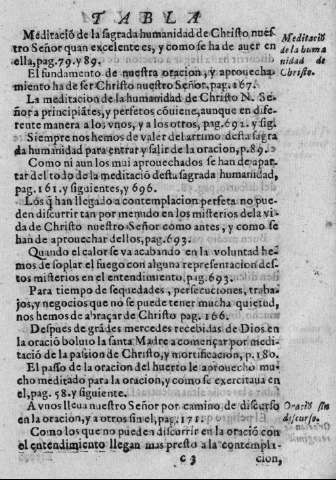 TABLA
Meditació de la sagrada humanidad de Christo nues
tro Señor quan excelente es, y como se ha de auer en
ella, pag. 79. y 89.
Meditació
de la huma
nidad de
Christo.
El fundamento de nuestra oracion, y aprouecha-
miento ha de ser Christo nuestro Señor, pag. 167.
La meditacion de la humanidad de Christo N. Se-
ñor a principiátes, y perfetos cóuiene, aunque en dife
rente manera a los vnos, y a los otros, pag. 692. y sig.
Siempre nos hemos de valer del arrimo desta sagra
da humanidad para entrar y salir de la oracion, p. 89.
Como ni aun los mui aprouechados se han de apar-
tar del todo de la meditació desta sagrada humanidad,
pag. 161. y siguientes, y 696.
Los q̃ han llegado a contemplacion perfeta no pue-
den discurrir tan por menudo en los misterios dela vi-
da de Christo nuestro Señor como antes, y como se
han de aprouechar dellos, pag. 693.
Quando el calor se va acabando en la voluntad he-
mos de soplar el fuego con alguna representacion des-
tos misterios en el entendimiento, pag. 693.
Para tiempo de sequedades, persecuciones, traba-
jos, y negocios que no se puede tener mucha quietud,
nos hemos de abraçar de Christo pag. 166.
Despues de grádes mercedes recebidas de Dios en
la oració boluio la santa Madre a començar por medi-
tació de la passion de Christo, y mortificacion, p. 180.
El passo de la oracion del huerto le aprouecho mu-
cho meditado para la oracion, y como se exercitaua en
el, pag. 58. y siguiente.
A vnos lleua nuestro Señor por camino de discurso
en la oracion, y a otros sin el, pag. 171.
Oració sin
discurso.
Como los que no pueden discurrir en la oració con
el entendimiento llegan mas presto a la contempla-
C 3 cion,